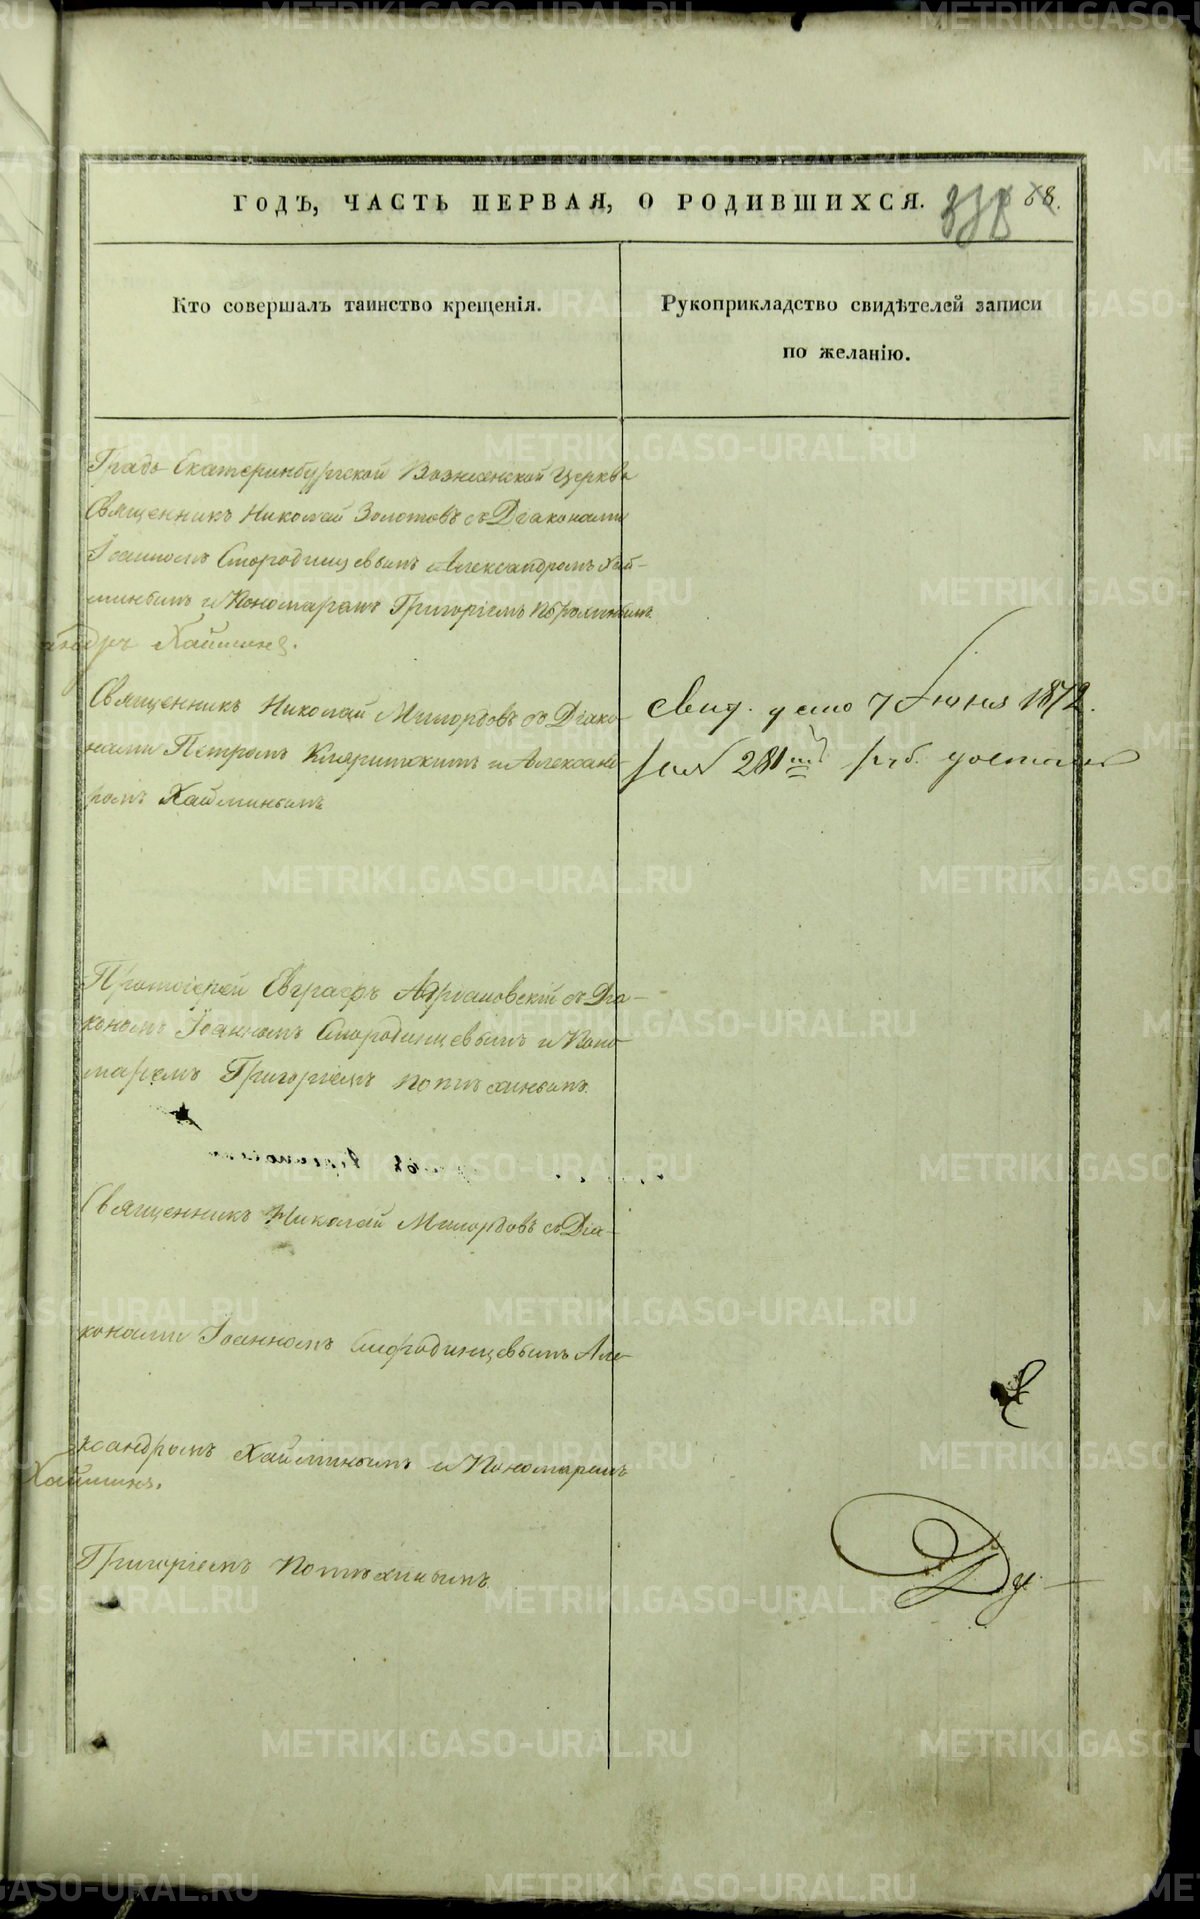 ГОДЪ, ЧАСТЬ ПЕРВАЯ, О РОДИВШИХСЯ.
88.
Кто совершалъ таинство крещенія.
Рукоприкладство свидѣтелей записи
по желанію.
Градо Екатеринбургской Вознесенской Церкви
Священникъ Николай Золотовъ съ Діаконами
Іоанномъ Смородинцевымъ Александромъ Хай-
минымъ и Пономаремъ Григоріемъ
Хайминъ.
Священникъ Николай Милордовъ съ Діако-
нами Петромъ и Александ-
ромъ Хайминымъ
Свид. дано 7 Іюня 1872.
281
Протоіерей Евграфъ Адріановскій съ Діа-
кономъ Іоанномъ Смородинцевымъ и Поно-
маремъ Григоріемъ Потѣхинымъ.
Священникъ Николай Милордовъ съ Діа-
конами Іоанномъ Смородинцевымъ Але-
ксандромъ Хайминымъ и Пономаремъ
Хайминъ.
Григоріемъ Потѣхинымъ.
METRIKI.GASO-URAL.RU